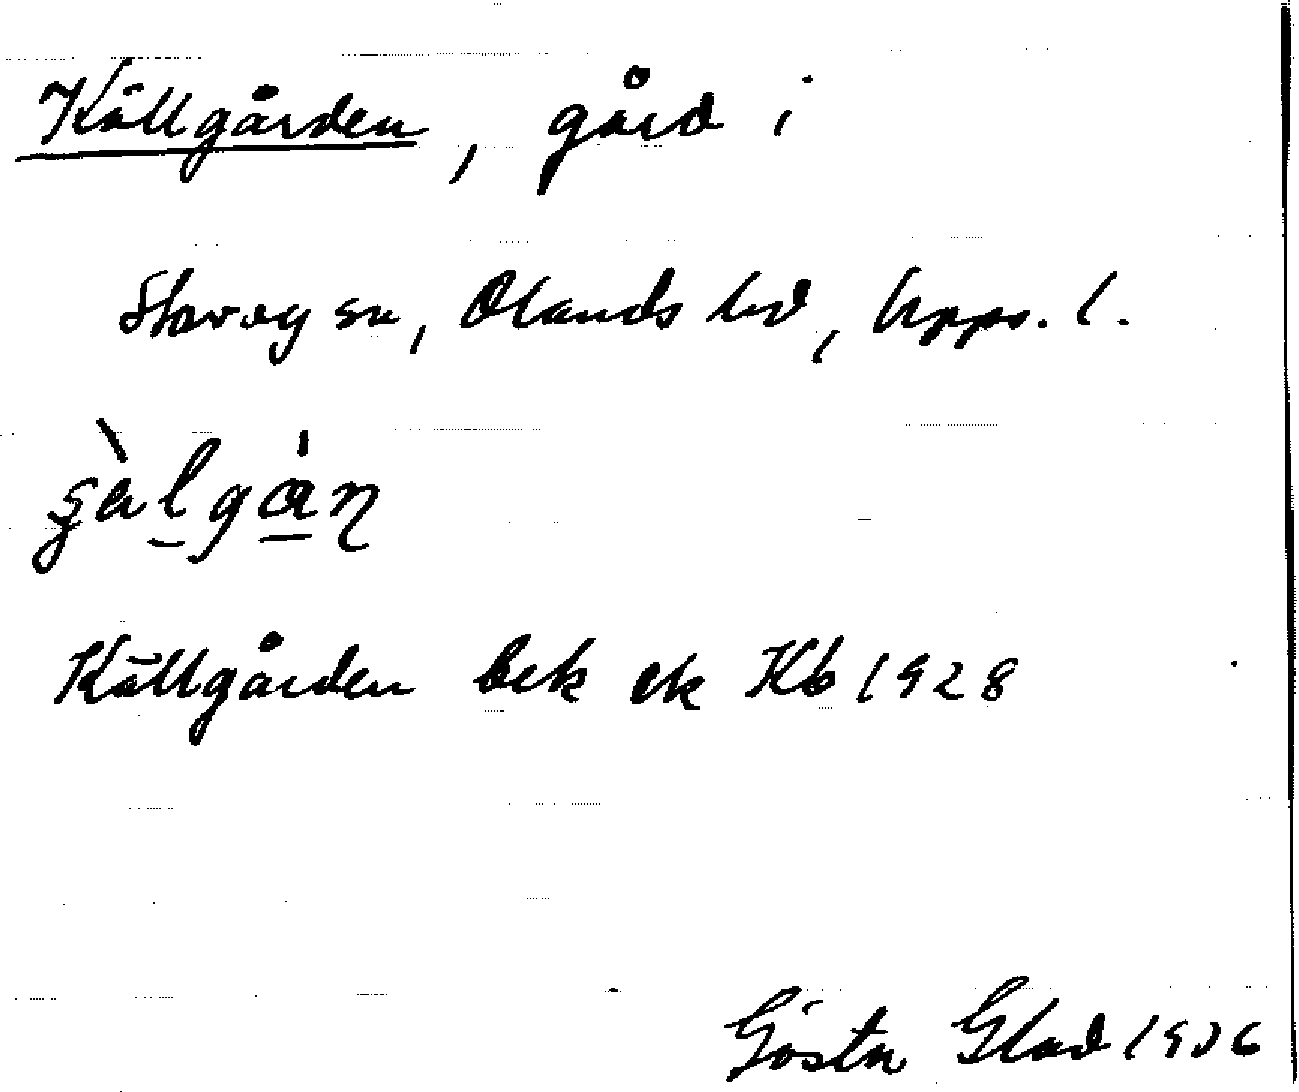 Källgården, gård i
Skoregn sn, Olands hd, Upps. l.
Källgården bek ek Kb 1928
Gösta Glad 1936